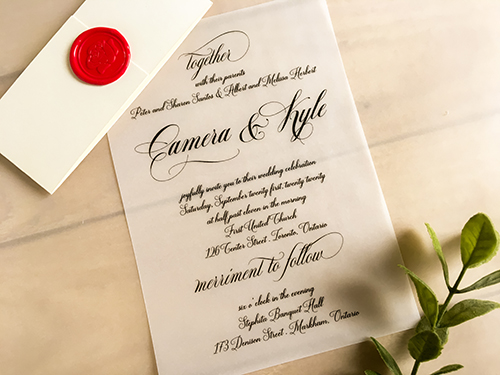 together
with their parents
Peter and Sharon Santos & Albert and Melissa Herbert
Camera & Kyle
joyfully invite you to their wedding celebration
Saturday, September twenty first, twenty twenty
at half past eleven in the morning
First United Church
126 Center Street · Toronto, Ontario
merriment to follow
six o'clock in the evening
Stephita Banquet Hall
173 Denison Street · Markham, Ontario